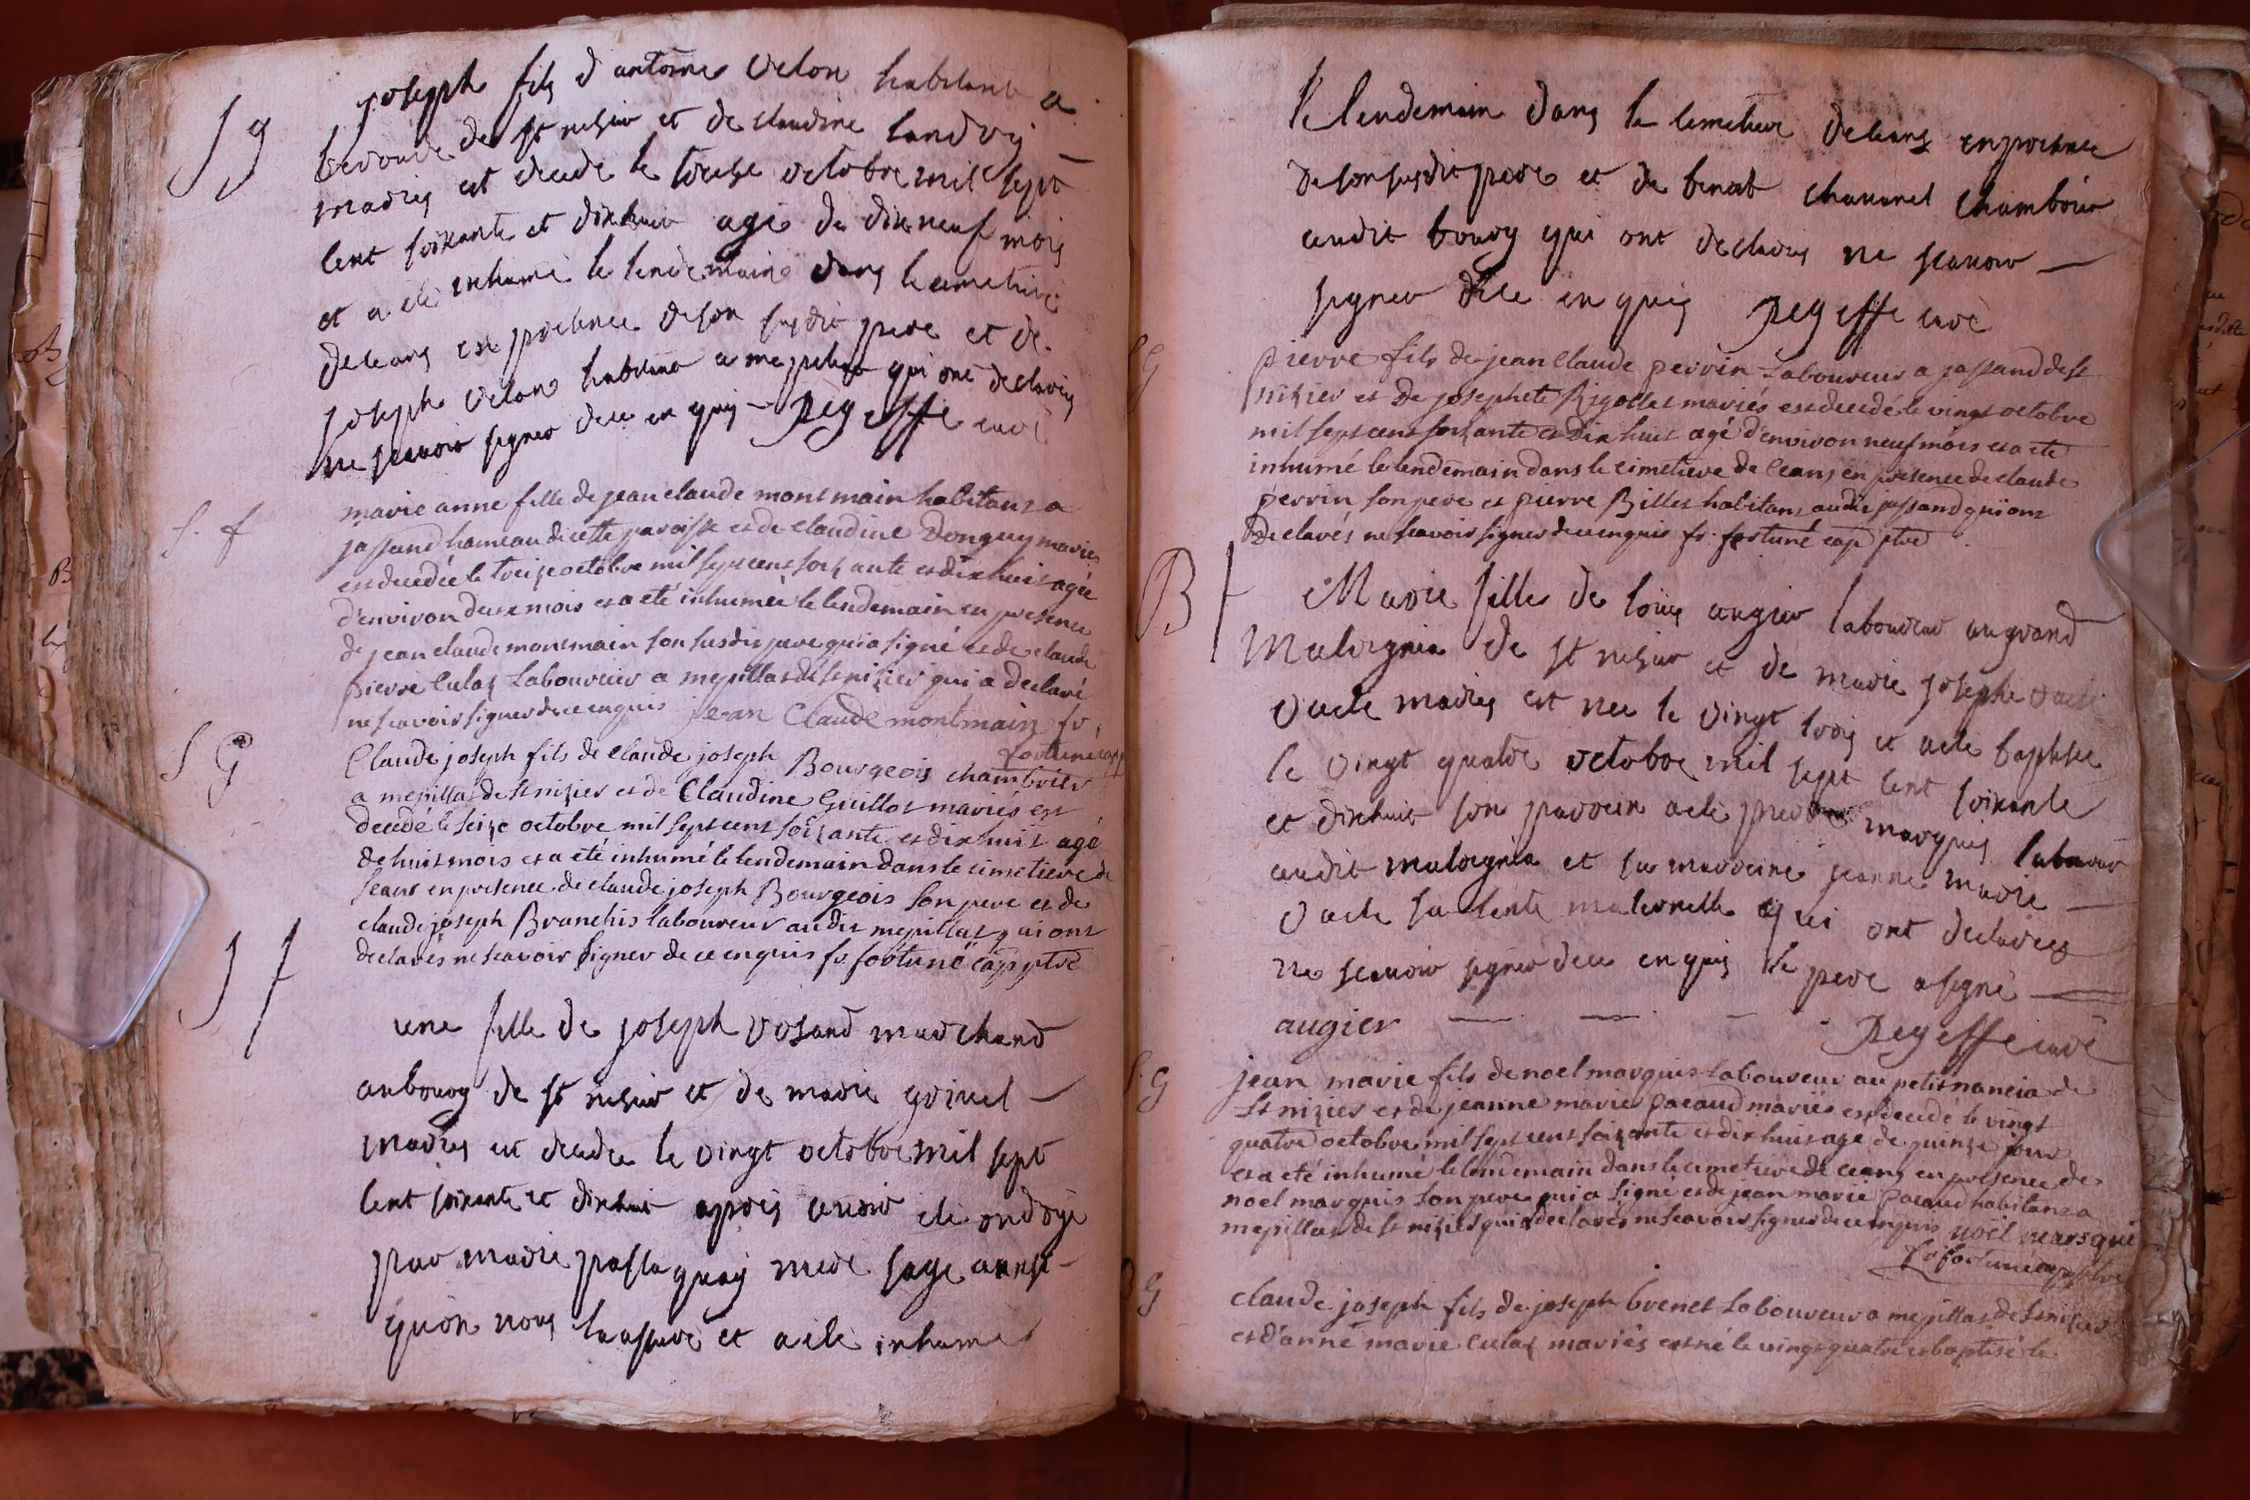 S g
joseph fils d antoine velon habitant a
de st nisier et de claudine landry
mariés est decede le treize octobre mil sept
cent soixante et dixhuit agé de dixneuf mois
et a eté inhumé le lendemain dans le cimetiere
de ceans en presence de son susdit pere et de
joseph velon habitant a mepillat qui ont declarés
ne scavoir signer de ce enquis peyssse curé
S. f
marie anne fille de jean claude montmain habitant a
jassand hameau de cette paroisse et de claudine Donguy mariés
est decedée le treize octobre mil sept cent soixante et dix huit agée
d'environ deux mois et a eté inhumée le lendemain en presence
de jean claude montmain son susdit pere qui a signé et de claude
pierre Culas Laboureur a mepillat de st nizier qui a declaré
ne scavoir signer de ce enquis jean Claude montmain fr.
fortuné cap
S G
Claude joseph fils de claude joseph Bourgeois chambrier
a mepillat de st nizier et de Claudine Guillot mariés est
decedé le seize octobre mil sept cent soixante et dix huit agé
de huit mois et a eté inhumé le lendemain dans le cimetiere de
seans en presence de claude joseph Bourgeois son pere et de
claude joseph Branchis laboureur audit mepillat qui ont
declarés ne scavoir signer de ce enquis fr fortuné cap ptre
S f
une fille de joseph vosand marchand
au bourg de st nisier et de marie
mariés est decedee le vingt octobre mil sept
cent soixante et dixhuit après avoir eté ondoyé
par marie pastaquay mere sage ainsi
qu'on nous la assuré et a eté inhumé
le lendemain dans le cimetiere de ceans en presence
de son susdit pere et de benoit chavanel chambrier
audit bourg qui ont declarés ne scavoir
signer de ce enquis peyssse curé
S G
pierre fils de jean claude perrin Laboureur a jassand de st
nizier et de josephete Rigollet mariés est decedé le vingt octobre
mil sept cent soixante et dix huit agé d'environ neuf mois et a eté
inhumé le lendemain dans le cimetiere de ceans en presence de claude
perrin son pere et pierre Billet habitans audit jassand qui ont
Declarés ne scavoir signer de ce enquis fr. fortuné cap ptre
B f
Marie fille de loüis augier laboureur au grand
Malesgnia de st nisier et de marie josephe vacle
vacle mariés est nee le vingt trois et a eté baptisée
le vingt quatre octobre mil sept cent soixante
et dixhuit son parrein a eté pierre marquis laboureur
audit malesgnia et sa marreine jeanne marie
vacle sa tente maternelle qui ont declarés
ne scavoir signer de ce enquis le pere a signé
augier peyssse curé
S. G
jean marie fils de noel marquis Laboureur au petit nancia de
st nizier et de jeanne marie pacaud mariés est decedé le vingt
quatre octobre mil sept cent soixante et dix huit agé de quinze jour
et a eté inhumé le lendemain dans le cimetiere de ceans en presence de
noel marquis son pere qui a signé et de jean marie pacaud habitant a
mepillat de st nizier qui a declarés ne scavoir signer de ce enquis noël marsquis
fr fortuné cap ptre
G
claude joseph fils de joseph brenet Laboureur a mepillat de st nizier
et d'anne marie Culas mariés est né le vingt quatre et baptisé le